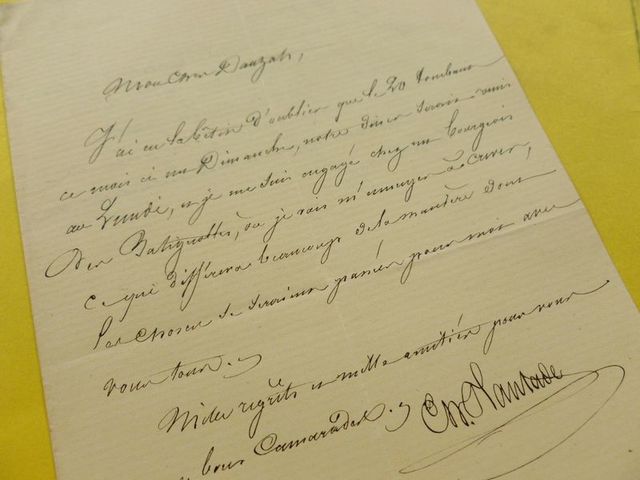 Mon Cher Dauzats,
J'ai eu la bêtise d'oublier que le 20 tombant
ce mois ci un Dimanche, notre diner serait remis
au Lundi, et je me suis engagé chez un bourgeois
des Batignolles, où je vais m'ennuyer à crever,
ce qui différera beaucoup de la manière dont
les choses se seraient passées pour moi avec
vous tous.
Mille regrets et mille amitiés pour vous
bons Camarades.